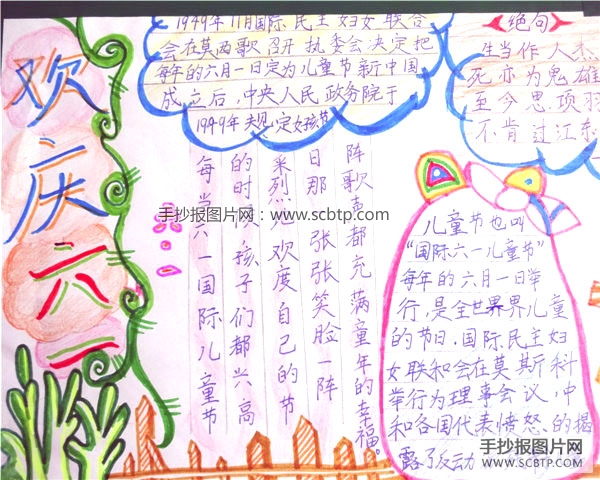 欢庆六一
1949年11月国际民主妇女联合
会在莫西歌召开执委会决定把
每年的六月一日定为儿童节新中国
成立之后,中央人民政务院于
1949年 定女孩节
绝句
生当作人杰
死亦为鬼雄
至今思项羽
不肯过江东
每当六一国际儿童节
的时候孩子们都兴高
采烈地欢度自己的节
日那 张张笑脸一阵
阵歌声都充满童年的幸福。
儿童节也叫
“国际六一儿童节”
每年的六月一日举
行,是全世界界儿童
的节日.国际民主妇
女联和会在莫斯科
举行为理事会议,中
和各国代表愤怒的揭
露了反动
手抄报图片网:www.scbtp.com
手抄报图片网
WWW.SCBTP.COM